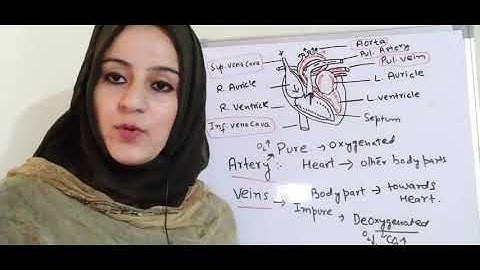 Aorta
Pul. Artery
Pul. vein
Sup. vena cava
R. Auricle
L. Auricle
R. Ventricle
L. ventricle
Inf. vena cava
Septum
O₂↑ Pure → Oxygenated
Artery: Heart → other body parts
Veins Body part → towards Heart.
→ Impure → Deoxygenated
O₂↓ CO₂↑